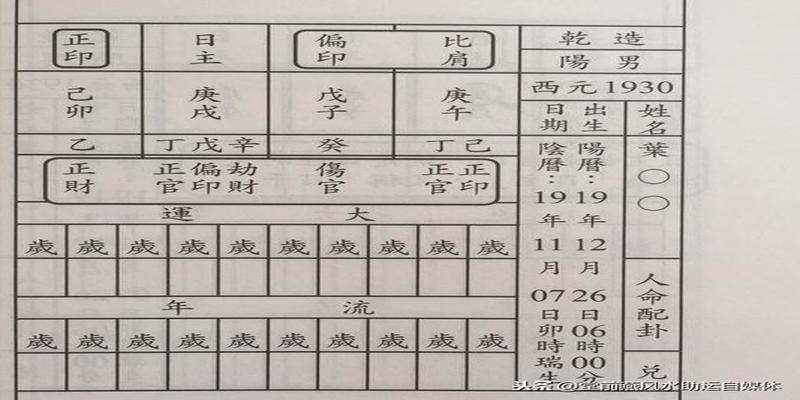 乾造
陽男
西元1930
姓名
葉○○
人命配卦
兌
出生日期
陽曆:19年12月26日06時00分
陰曆:19年11月07日卯時瑞生
比肩
偏印
日主
正印
庚午
戊子
庚戌
己卯
丁己
癸
丁戊辛
乙
正印
正官
傷官
劫財
偏印
正官
正財
大運
歲歲歲歲歲歲歲歲歲歲
流年
歲歲歲歲歲歲歲歲歲歲
头条
风水助运自媒体